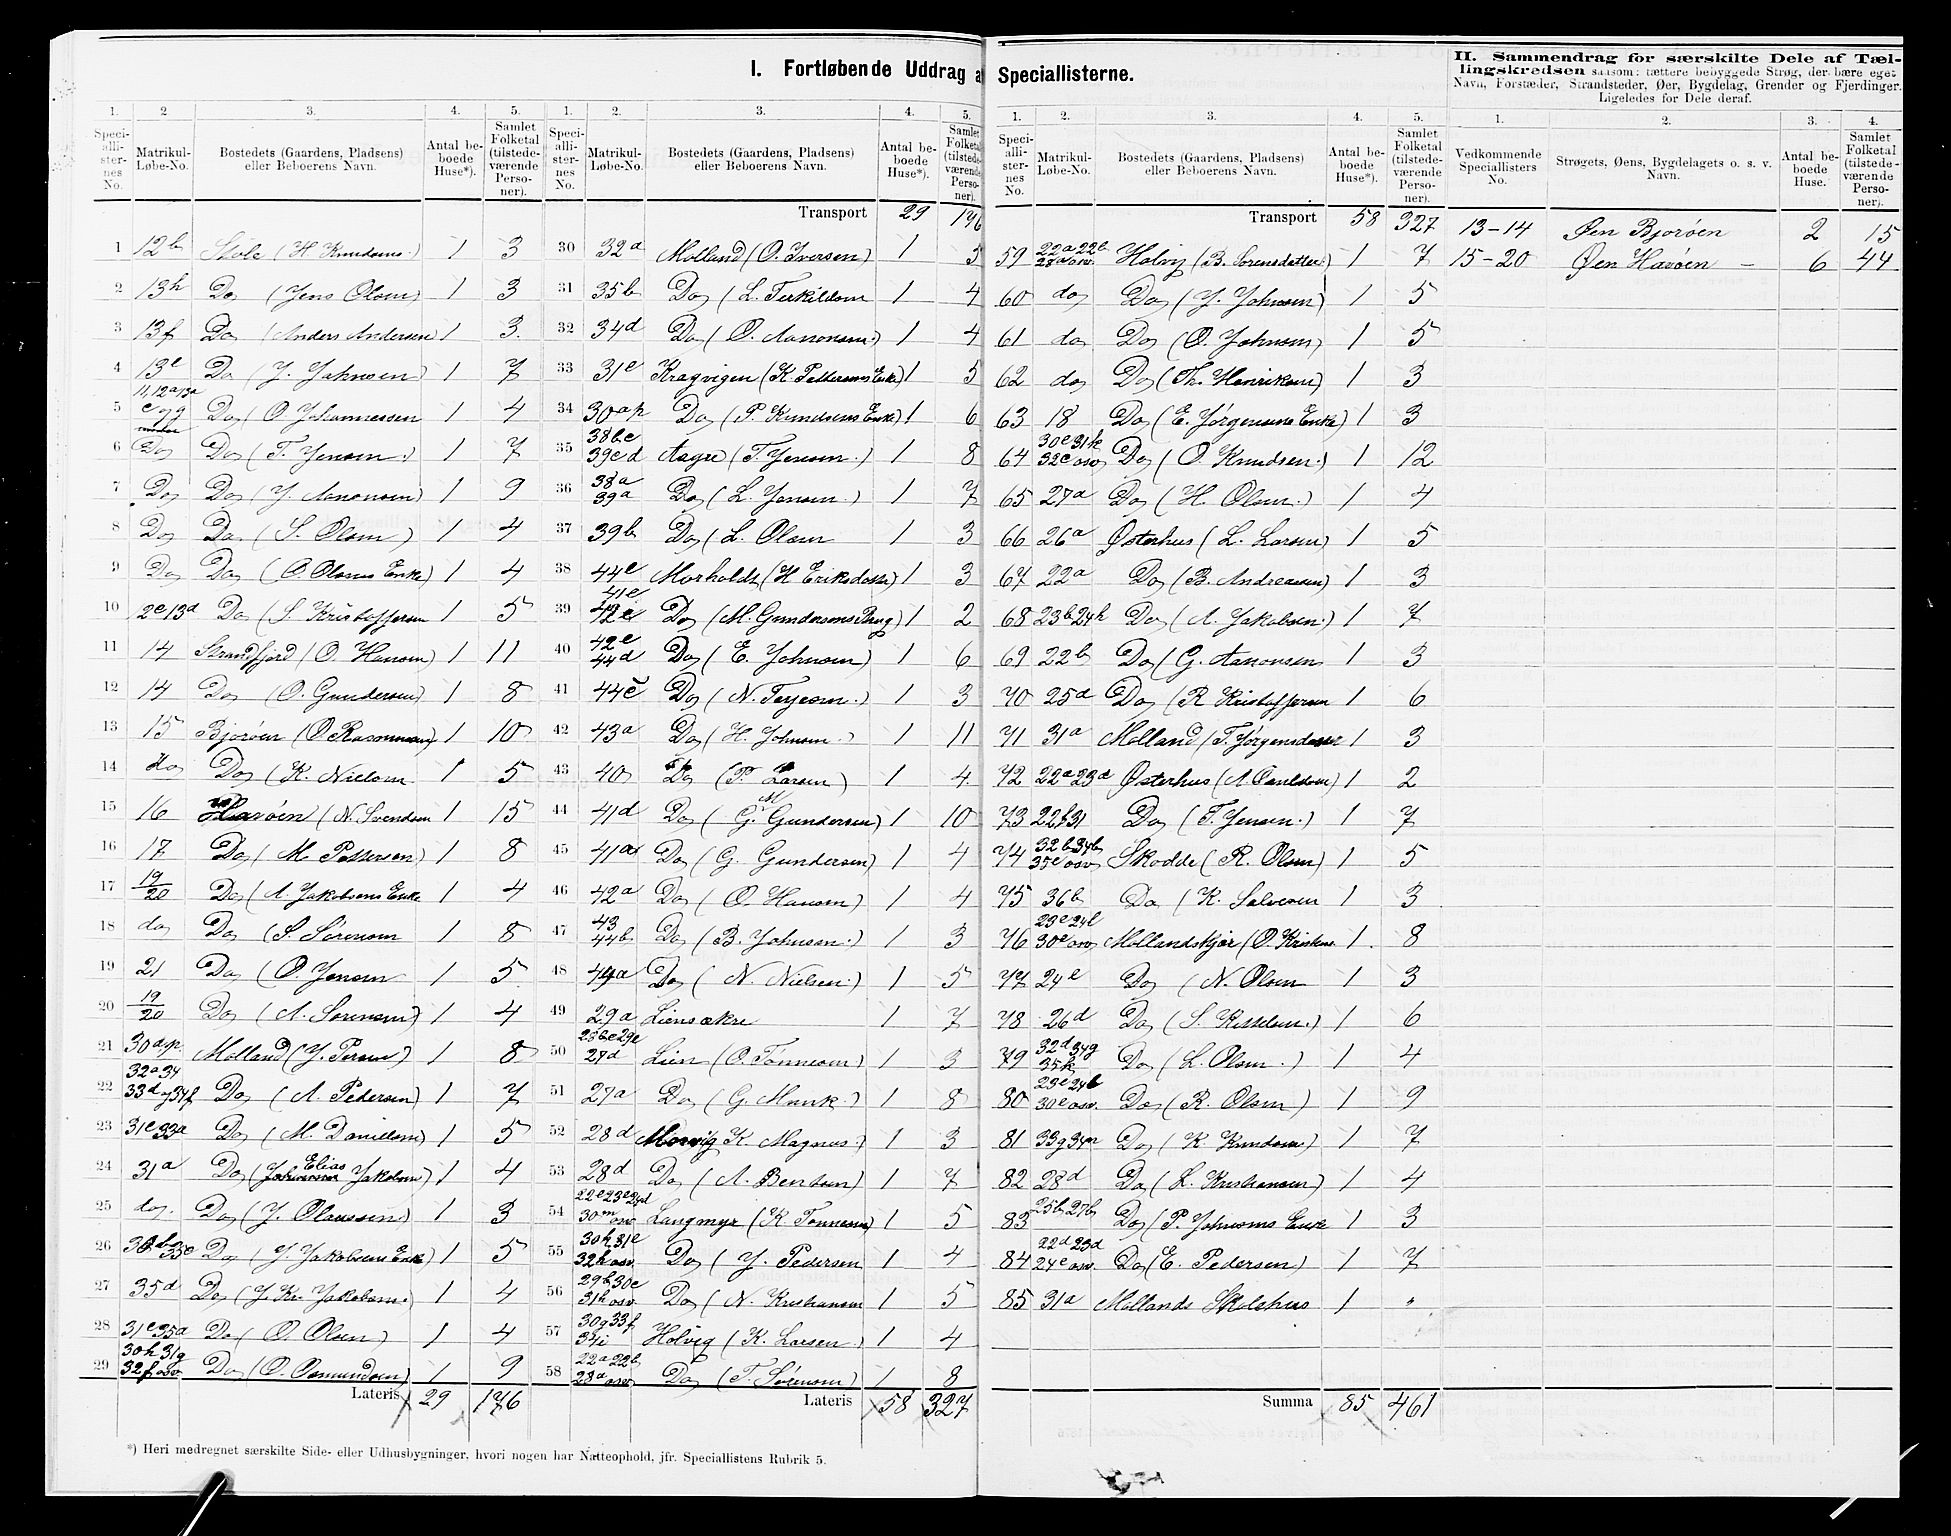 I. Fortløbende Uddrag a Speciallisterne.
II. Sammendrag for særskilte Dele af Tæl-
lingskredsen saasom: tættere bebyggede Strøg, der bære eget
Navn, Forstæder, Strandsteder, Øer, Bygdelag, Grender og Fjerdinger.
Ligeledes for Dele deraf.
1. 2 3. 4. 5. 1. 2. 3. 4. 5.
Speci-alli-ster-nes No. Matrikul-Løbe-No. Bostedets (Gaardens, Pladsens) eller Beboerens Navn. Antal be-boede Huse*). Samlet Folketal (tilstede-værende Perso-ner).
Speci-alli-ster-nes No. Matrikul-Løbe-No. Bostedets (Gaardens, Pladsens) eller Beboerens Navn. Antal be-boede Huse*). Samlet Folketal (tilstede-værende Perso-ner).
1 12b Støle (H Knudsens) 1 3
2 13h Do (Jens Olsen) 1 3
3 13f Do (Anders Andersen) 1 3
4 13e Do (J. Johnsen) 1 7
5 11, 12a 13a Do (O. Johannessen 1 4
6 Do Do (T. Jensen) 1 7
7 Do Do (J. Aanonsen) 1 9
8 Do Do (S. Olsen) 1 4
9 Do Do (O. Olsens Enke) 1 4
10 2e 13d Do (S. Kristoffersen 1 5
11 14 Strandfjord (O. Hansen) 1 11
12 14 Do (O. Gundersen) 1 8
13 15 Bjorøen (O Rasmussen) 1 10
14 do Do (K. Nielsen 1 5
15 16 Havøen (N. Svendsen 1 15
16 17 Do (M. Pettersen) 1 8
17 19/20 Do (A. Jakobsens Enke 1 4
18 do Do (S. Sörensen 1 8
19 21 Do (O. Jensen 1 5
20 19/20 Do (A. Sorensen) 1 4
21 30a.p. Molland (J. Persen) 1 8
22 32a 34 33d og 34f Do (A. Pedersen) 1 7
23 31e 33a Do (M. Danielsen) 1 5
24 31a Do (Elias Jakobsen) 1 4
25 do. Do (J. Olaussen) 1 3
26 Do (J. Jakobsens Enke) 1 5
27 35d Do (J. Kr. Jakobsen.) 1 4
28 31e 35a Do (O. Olsen) 1 4
29 30h 31g 32f osv Do (O. Osmundsen) 1 9
Lateris 29 176
Transport 29 176
30 32a Molland (O. Iversen) 1 5
31 35b Do (L. Terkildsen 1 4
32 34d Do (O. Aanonsen.) 1 4
33 31e Kragvigen (K. Pettersens Enke) 1 5
34 30ap Do (P. Knudsens Enke) 1 6
35 38b,c 39c d Aagre (T. Jensen.) 1 8
36 38a 39a Do (L. Jensen.) 1 7
37 39b Do (L. Olsen 1 3
38 44e Morholdt (H Eriksdatter) 1 3
39 41e 42c Do (M. Gundersens Brug) 1 2
40 42e 44d Do (E. Johnsen) 1 6
41 44c Do (N. Terjesen.) 1 3
42 43a Do (H. Johnsen.) 1 11
43 40 Do (P. Larsen) 1 4
44 41d Do (G. M Gundersen) 1 10
45 41a Do (G. Gundersen) 1 4
46 42a Do (O. Hansen) 1 4
47 43 44b Do (B. Johnsen.) 1 3
48 44a Do (N. Nielsen.) 1 5
49 29a Liensækre 1 7
50 28d Lien (O. Tönnesen) 1 3
51 27a Do (G. Munk.) 1 8
52 28d K. Magnus.) 1 3
53 28d Do (A. Bentsen) 1 7
54 22c 23c 24d 30m osv Langmyr (K. Tönnesen) 1 5
55 30h 31e 32h osv. Do (J. Pedersen 1 4
56 29b 30e 31h osv. Do (N. Kristiansen 1 5
57 30g 33f 34i Holvig (K. Larsen.) 1 4
58 22a 22b 28a osv Do (T. Sörensen) 1 8
Lateris 58 327
*) Heri medregnet særskilte Side- eller Udhusbygninger, hvori nogen har Natteophold, jfr. Speciallistens Rubrik 5.
1. 2. 3. 4. 5. 1. 2. 3. 4.
Speci-alli-ster-nes No. Matrikul-Løbe-No. Bostedets (Gaardens, Pladsens) eller Beboerens Navn. Antal be-boede Huse*). Samlet Folketal (tilstede-værende Perso-ner).
Transport 58 327
59 22a 22b 28a osv. Holvig (B. Sorensdatter) 1 7
60 do Do (J. Johnsen) 1 5
61 do Do (O. Johnsen) 1 5
62 do Do (Th. Henriksen) 1 3
63 18 Do (E. Jörgensens Enke) 1 3
64 30e 31k 32c osv Do (O. Knudsen.) 1 12
65 27a Do (H. Olsen.) 1 4
66 26a Østerhus (L. Larsen) 1 5
67 22a Do (B. Andreassen) 1 3
68 23b 24h Do (A. Jakobsen.) 1 7
69 22b Do (G. Aanonsen 1 3
70 25d Do (R Kristoffersen 1 6
71 31a Molland (T. Jörgensdatter 1 3
72 22a 23d Østerhus (A. Carlsen) 1 2
73 22f 31 Do (T. Jensen.) 1 7
74 32b 34b 35e osv Skodde (R. Olsen) 1 5
75 36b Do (K. Salvesen 1 3
76 23e 24b 30e osv Mollandskjær (O. Kristens. 1. 8
77 24e Do (N. Olsen 1 3
78 26d Do (S. Kittelsen.) 1 6
79 32d 34g 35k Do (L. Olsen.) 1 4
80 23e 24b 30e osv. Do (R. Olsen) 1 9
81 33g 34n Do (K. Knudsen) 1 7
82 28d Do (L. Kristiansen) 1 4
83 25b 27b Do (P. Johnsens Enke 1 3
84 22d 23d 24c osv. Do (E. Pedersen) 1 7
85 31a Mollands Skolehus 1 "
Summa 85 461
Vedkommende Speciallisters No. Strøgets, Øens, Bygdelagets o. s. v. Navn. Antal be-boede Huse. Samlet Folketal (tilstede-værende Perso-ner).
13-14 Øen Bjorøen 2 15
15-20 Øen Havøen 6 44